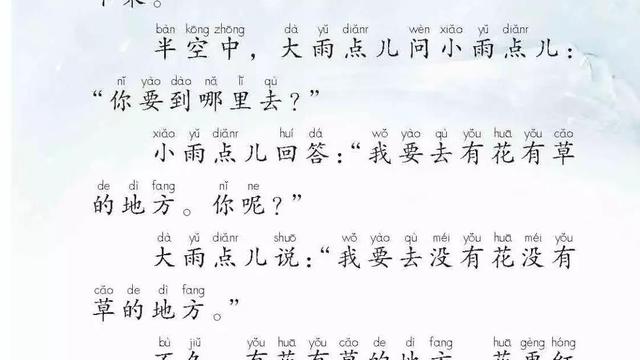 bàn kōng zhōng dà yǔ diǎnr wèn xiǎo yǔ diǎnr
半空中，大雨点儿问小雨点儿：
nǐ yào dào nǎ lǐ qù
“你要到哪里去？”
xiǎo yǔ diǎnr huí dá wǒ yào qù yǒu huā yǒu cǎo
小雨点儿回答：“我要去有花有草
de dì fang nǐ ne
的地方。你呢？”
dà yǔ diǎnr shuō wǒ yào qù méi yǒu huā méi yǒu
大雨点儿说：“我要去没有花没有
cǎo de dì fang
草的地方。”
bù jiǔ yǒu huā yǒu cǎo de dì fang huā gèng hóng